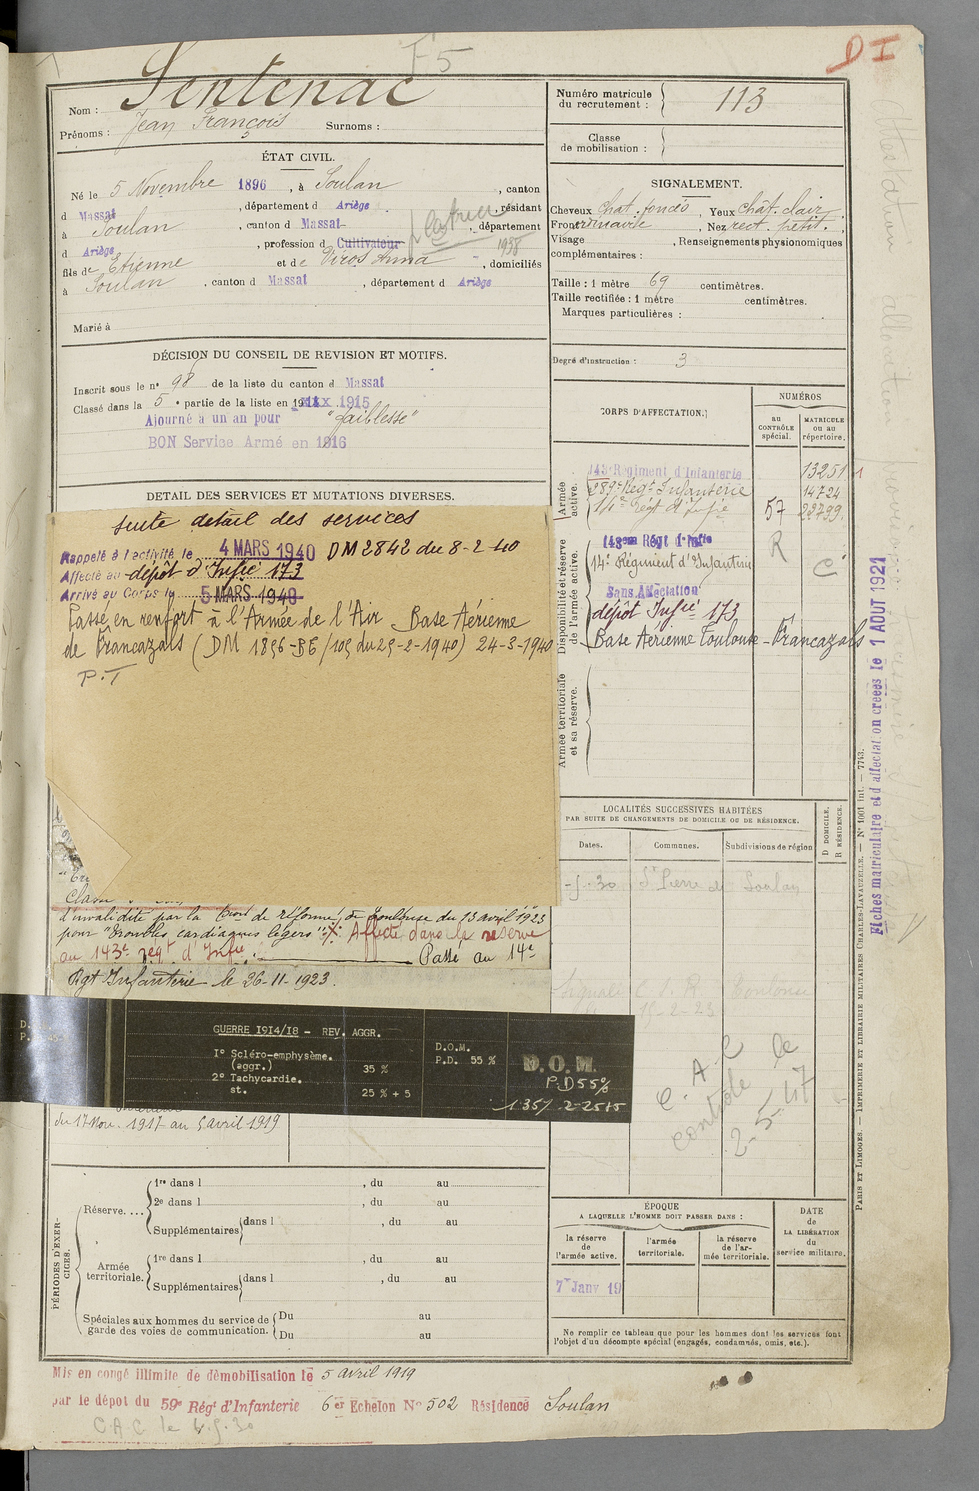 F5
D I
Nom : Sentenac
Prénoms : Jean François Surnoms :
ÉTAT CIVIL.
Né le 5 Novembre 1896, à Soulan, canton
d Massat, département d Ariège, résidant
à Soulan, canton d Massat, département
d Ariège, profession d Cultivateur
1938
fils de Etienne et de Viros Anna, domiciliés
à Soulan, canton d Massat, département d Ariège
Marié à
DÉCISION DU CONSEIL DE REVISION ET MOTIFS.
Inscrit sous le n° 98 de la liste du canton d Massat
Classé dans la 5e partie de la liste en 1915
Ajourné à un an pour "faiblesse"
BON Service Armé en 1916
DETAIL DES SERVICES ET MUTATIONS DIVERSES.
suite detail des services
Rappelé à l'activité le 4 MARS 1940 DM 2842 du 8-2-40
Affecté au dépôt d'Infie 173
Arrivé au Corps le 5 MARS 1940
Passé en renfort à l'Armée de l'Air Base Aérienne
de Francazals (DM 1896-BE/105 du 25-2-1940) 24-3-1940
P.T
d'invalidité par la Cion de réforme de Toulouse du 13 avril 1923
pour "troubles cardiaques légers". Affecté dans la réserve
au 143e régt d'Infie. Passé au 14e
Rgt Infanterie le 26-11-1923.
GUERRE 1914/18 - REV. AGGR.
1° Scléro-emphysème.
(aggr.) 35 %
2° Tachycardie.
st. 25 % + 5
D.O.M.
P.D. 55 %
D.O.M.
P.D 55%
1357 2-2515
du 17 Nov. 1917 au 5 avril 1919
PÉRIODES D'EXERCICES.
Réserve....
1re dans l , du au
2e dans l , du au
Supplémentaires dans l , du au
Armée territoriale.
1re dans l , du au
Supplémentaires dans l , du au
Spéciales aux hommes du service de garde des voies de communication.
Du au
Du au
Mis en congé illimité de démobilisation le 5 avril 1919
par le dépot du 59e Régt d'Infanterie 6er Echelon N° 502 Résidence Soulan
C.A.C le 6.5.30
Numéro matricule
du recrutement : 113
Classe
de mobilisation :
SIGNALEMENT.
Cheveux chat. foncé, Yeux chât. clair
Front ordinaire, Nez rect. petit.
Visage , Renseignements physionomiques
complémentaires :
Taille : 1 mètre 69 centimètres.
Taille rectifiée : 1 mètre centimètres.
Marques particulières :
Degré d'instruction : 3
CORPS D'AFFECTATION.
NUMÉROS
au CONTRÔLE spécial.
MATRICULE ou au répertoire.
Armée active.
143e Régiment d'Infanterie 13251
289e Régt Infanterie 14724
14e Régt d'Infie 57 22799
Disponibilité et réserve de l'armée active.
143eme Régt d'Infie R
14e Régiment d'Infanterie
Sans Affectation
dépôt Infie 173
Base Aérienne Toulouse-Francazals
Armée territoriale et sa réserve.
LOCALITÉS SUCCESSIVES HABITÉES
PAR SUITE DE CHANGEMENTS DE DOMICILE OU DE RÉSIDENCE.
Dates. Communes. Subdivisions de région
D DOMICILE.
R RÉSIDENCE.
St Pierre de Soulan
Signalé C.S.R Toulouse
15-2-23
C. A. C le
contrôle 2-5-47
ÉPOQUE
A LAQUELLE L'HOMME DOIT PASSER DANS :
la réserve de l'armée active.
l'armée territoriale.
la réserve de l'armée territoriale.
DATE de LA LIBÉRATION du service militaire.
7 Janv 19
Ne remplir ce tableau que pour les hommes dont les services font
l'objet d'un décompte spécial (engagés, condamnés, omis, etc.).
Fiches matriculaire et d'affectation créées le 1 AOUT 1921
PARIS ET LIMOGES. — IMPRIMERIE ET LIBRAIRIE MILITAIRES CHARLES-LAVAUZELLE. — N° 1001 int. — 7743.